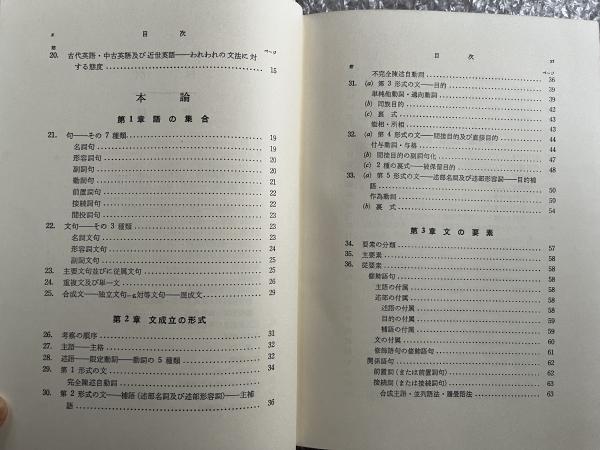 目次
節
ページ
20. 古代英語・中古英語及び近世英語——われわれの文法に対
する態度 15
本論
第1章 語の集合
21. 句——その7種類 19
名詞句 19
形容詞句 20
副詞句 20
動詞句 21
前置詞句 22
接続詞句 22
間投詞句 23
22. 文句——その3種類 23
名詞文句 23
形容詞文句 24
副詞文句 25
23. 主要文句並びに従属文句 25
24. 重複文及び単一文 25
25. 合成文——独立文句——対等文句——混成文 29
第2章 文成立の形式
26. 考察の順序 31
27. 主語——主格 32
28. 述語——限定動詞——動詞の5種類 32
29. 第1形式の文 34
完全陳述自動詞
30. 第2形式の文——補語(述部名詞及び述部形容詞)——主補
語 36
目次
節
ページ
不完全陳述自動詞 36
31. (a) 第3形式の文——目的 39
単純他動詞・適向動詞 39
(b) 同族目的 40
(c) 裏式 42
能相・所相 42
32. (a) 第4形式の文——間接目的及び直接目的 44
付与動詞・与格 44
(b) 間接目的の副詞句化 46
(c) 2種の裏式——被保留目的 48
33. (a) 第5形式の文——述部名詞及び述部形容詞——目的補
語 50
作為動詞 50
(b) 裏式 54
第3章 文の要素
34. 要素の分類 57
35. 主要素 58
36. 従要素 58
修飾語句 58
主語の付属 58
述部の付属 58
述語の付属 58
目的の付属 59
補語の付属 59
文の付属 60
修飾語句の修飾語句 61
関係語句 62
前置詞(または前置詞句) 62
接続詞(または接続詞句) 63
合成主語・並列語法・層畳語法